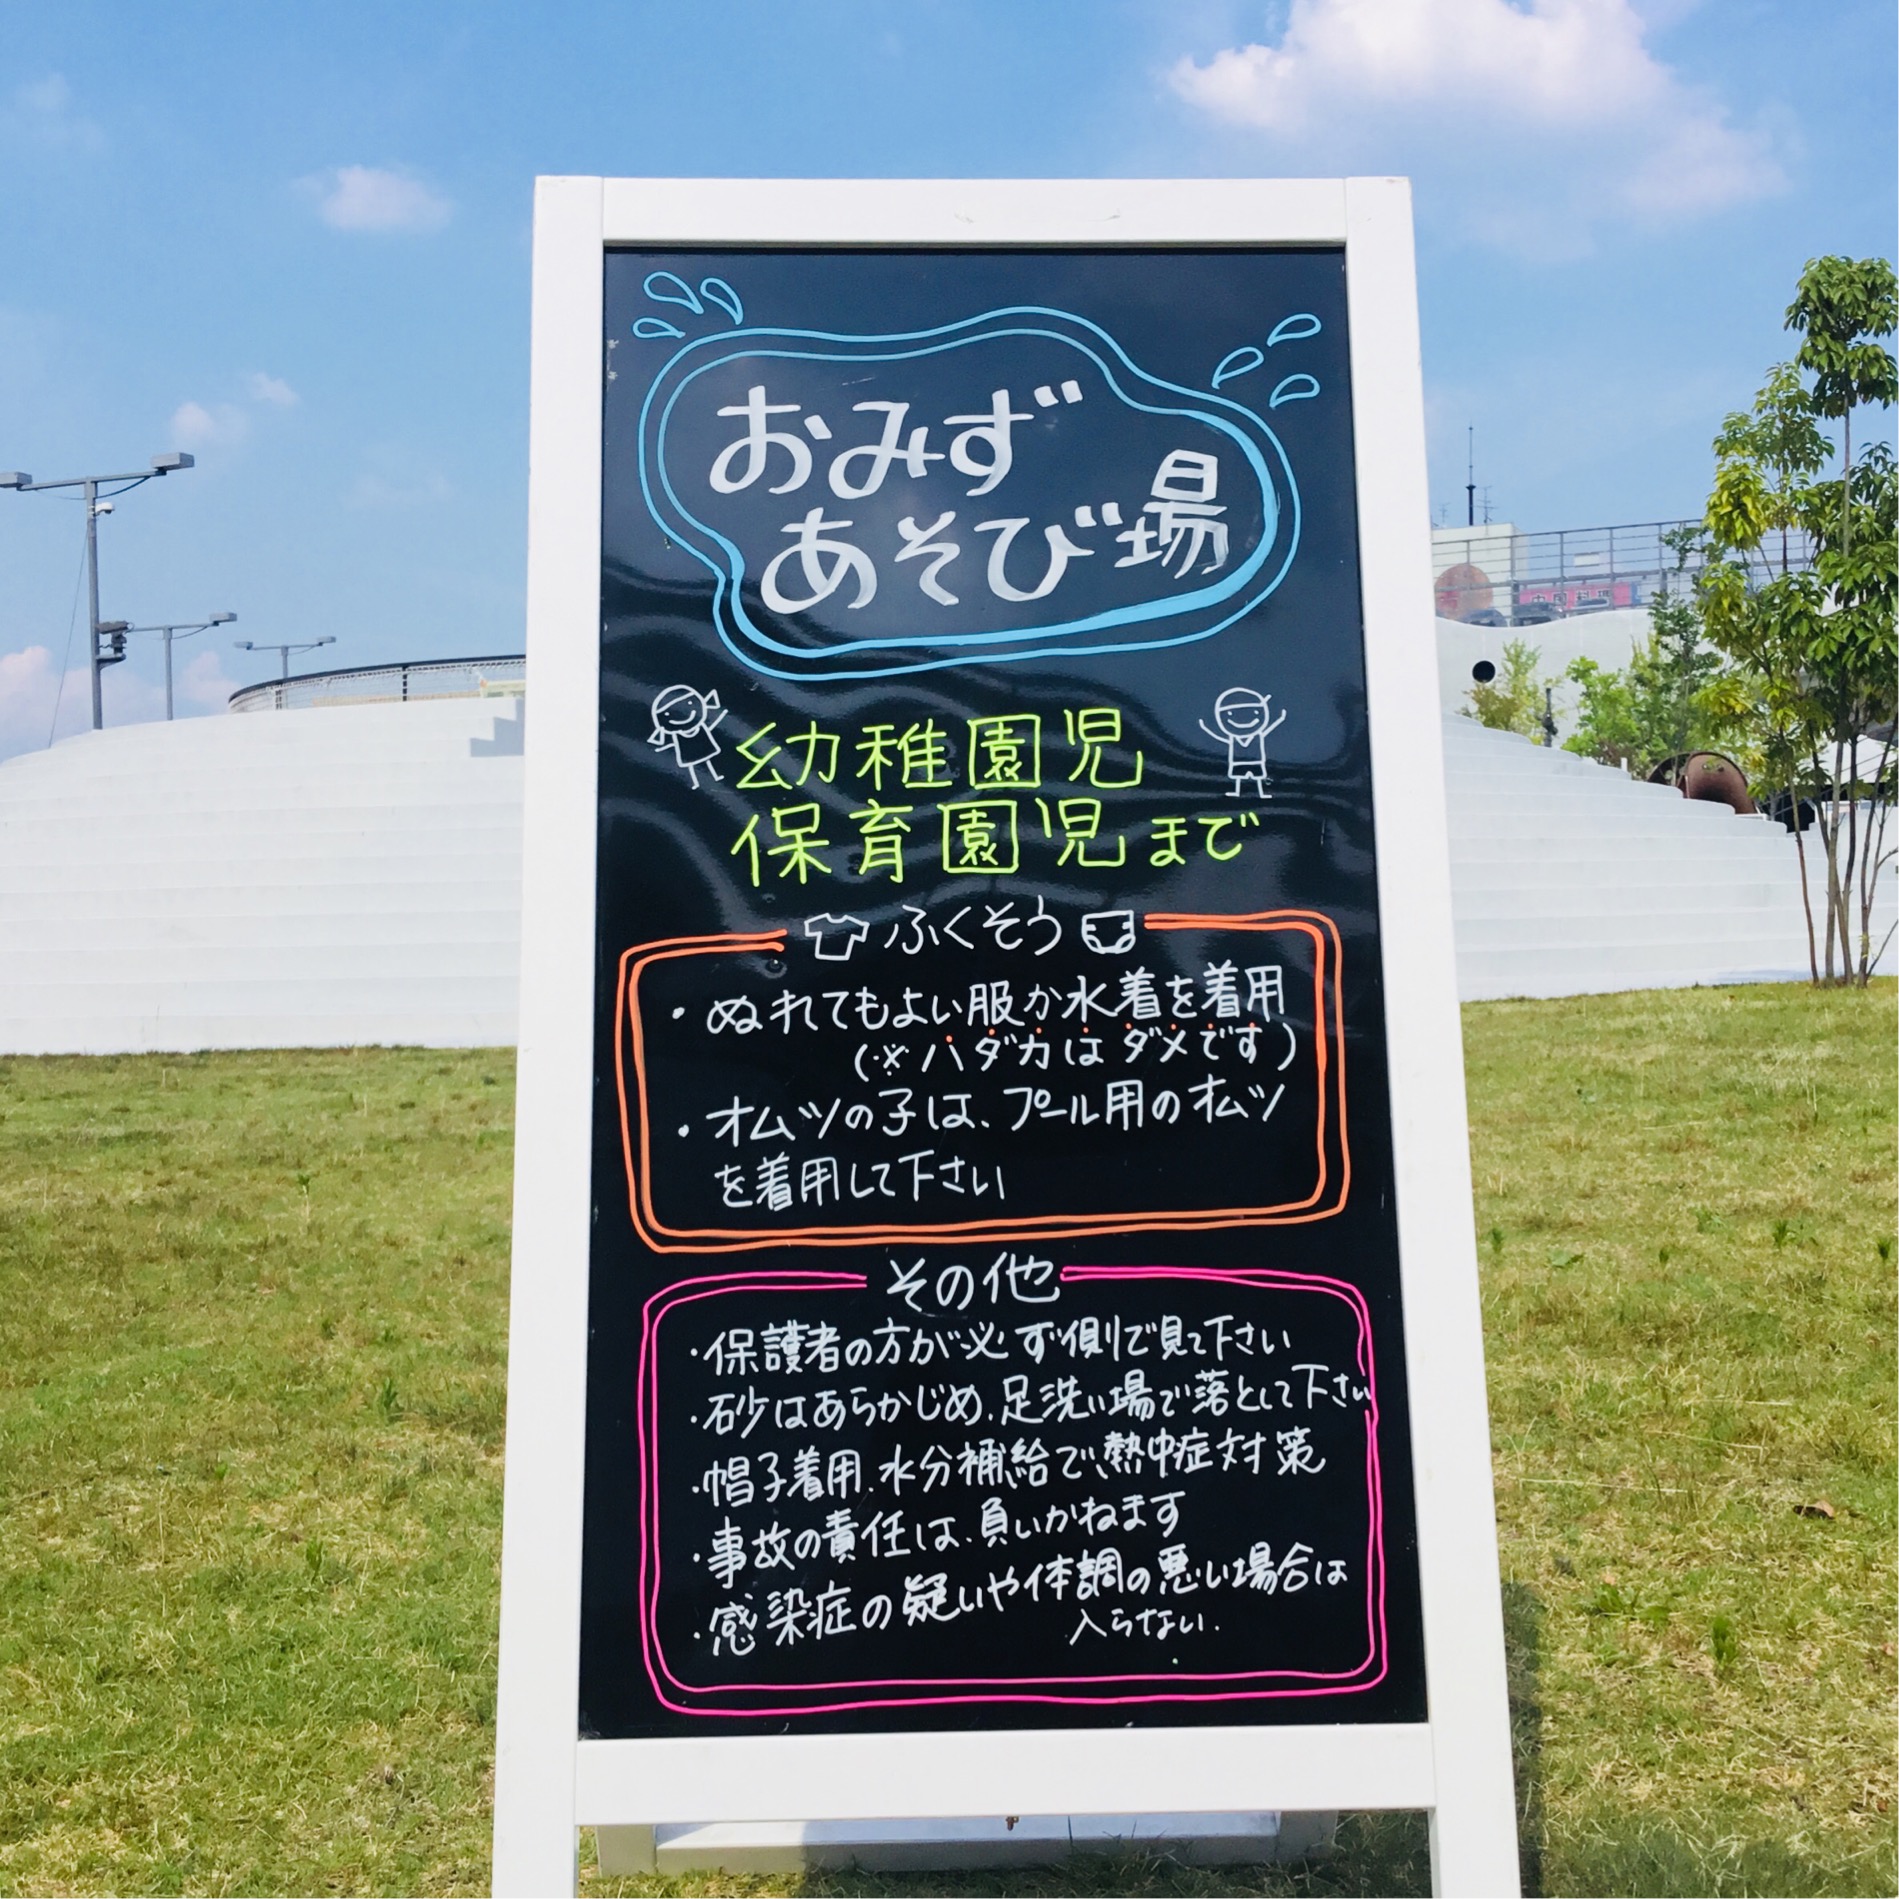 おみず
あそび場
幼稚園児
保育園児まで
ふくそう
・ぬれてもよい服か水着を着用
(※ハダカはダメです)
・オムツの子は、プール用のオムツ
を着用して下さい
その他
・保護者の方が必ず側で見て下さい
・砂はあらかじめ、足洗い場で落として下さい
・帽子着用、水分補給で、熱中症対策
・事故の責任は、負いかねます
・感染症の疑いや体調の悪い場合は
入らない.